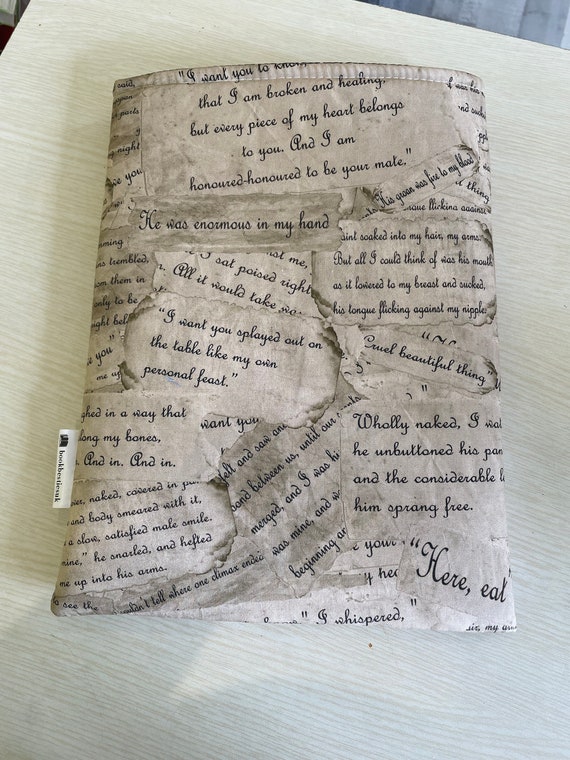 "I want you to know
that I am broken and healing,
but every piece of my heart belongs
to you. And I am
honoured-honoured to be your mate."
said,
parts
night
ve you
His groan was fire to my blood
thing
tongue flicking against
He was enormous in my hand
aint soaked into my hair, my arms.
But all I could think of was his mouth
as it lowered to my breast and sucked,
his tongue flicking against my nipple
me,
I sat poised right
All it would take wa
ns trembled,
om them in
only to be
ight bef
you"
me up
"I want you splayed out on
the table like my own
personal feast."
Cruel beautiful thing"
ghed in a way that
long my bones,
n. And in. And in.
want you
Wholly naked, I wat
he unbuttoned his pan
and the considerable le
him sprang free.
felt and saw and
bond between us, until our
merged, and I was his
was mine, and we
beginning an
bookbesties.uk
ver, naked, covered in
s and body smeared with it,
a slow, satisfied male smile.
mine," he snarled, and hefted
me up into his arms.
o see the
couldn't tell where one climax ended
e your
"Here, eat
I whispered,"